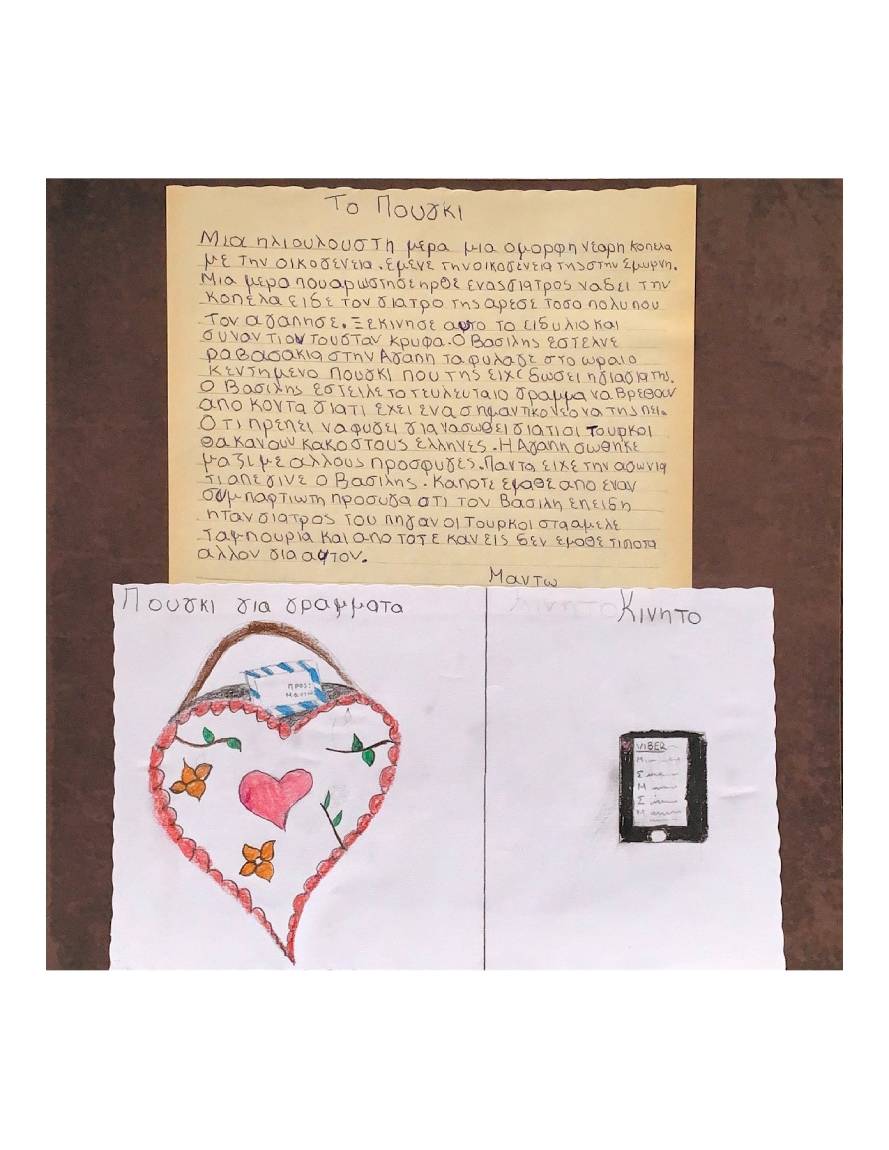 Το Πουγκι
Μια ηλιουλουστη μερα μια ομορφη νεαρη κοπελα
με την οικογενεια. Εμενε την οικογενεια της στην Σμυρνη.
Μια μερα που αρωστησε ηρθε ενας γιατρος να δει την
κοπελα ειδε τον γιατρο της αρεσε τοσο πολυ που
τον αγαπησε. Ξεκινησε αυτο το ειδυλιο και
συναντιονтоυσταν κρυφα. Ο Βασιλης εστελνε
ραβασακια στην Αγαπη τα φυλαγε στο ωραιο
κεντημενο πουγκι που της ειχε δωσει η γιαγια της.
Ο Βασιλης εστειλε το τευλευταιο γραμμα να βρεθουν
απο κοντα γιατι εχει ενα σημαντικο νεο να της πει.
Ο τι πρεπει να φυγει για να σωθει γιατι οι Τουρκοι
θα κανουν κακο στους Ελληνες. Η Αγαπη σωθηκε
μαζι με αλλους προσφυγες. Παντα ειχε την αγωνια
τι απεγινε ο Βασιλης. Καποτε εμαθε απο εναν
συμπαρτιωτη προσυγα οτι τον Βασιλη επειδη
ηταν γιατρος τον πηγαν οι Τουρκοι στα αμελε
ταμπουρια και απο τοτε κανεις δεν εμαθε τιποτα
αλλον για αυτον.
Μαντω
Πουγκι για γραμματα
Κινητο
προς:
Μαντω
VIBER